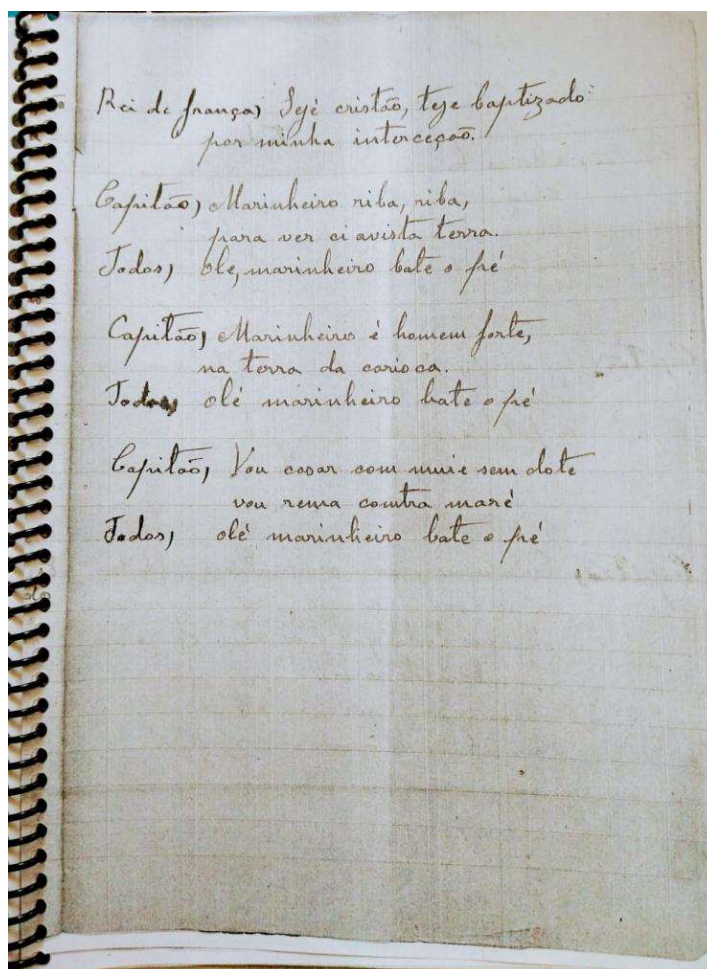 Rei de frança) Sejé cristão, teje baptizado
por minha interceção.
Capitão) Marinheiro riba, riba,
para ver ci avista terra.
Todos) ole, marinheiro bate o pé
Capitão) Marinheiro é homem forte,
na terra da carioca.
Todos) olé marinheiro bate o pé
Capitão) Vou casar com muie sem dote
vou rema contra maré
Todos) olé marinheiro bate o pé